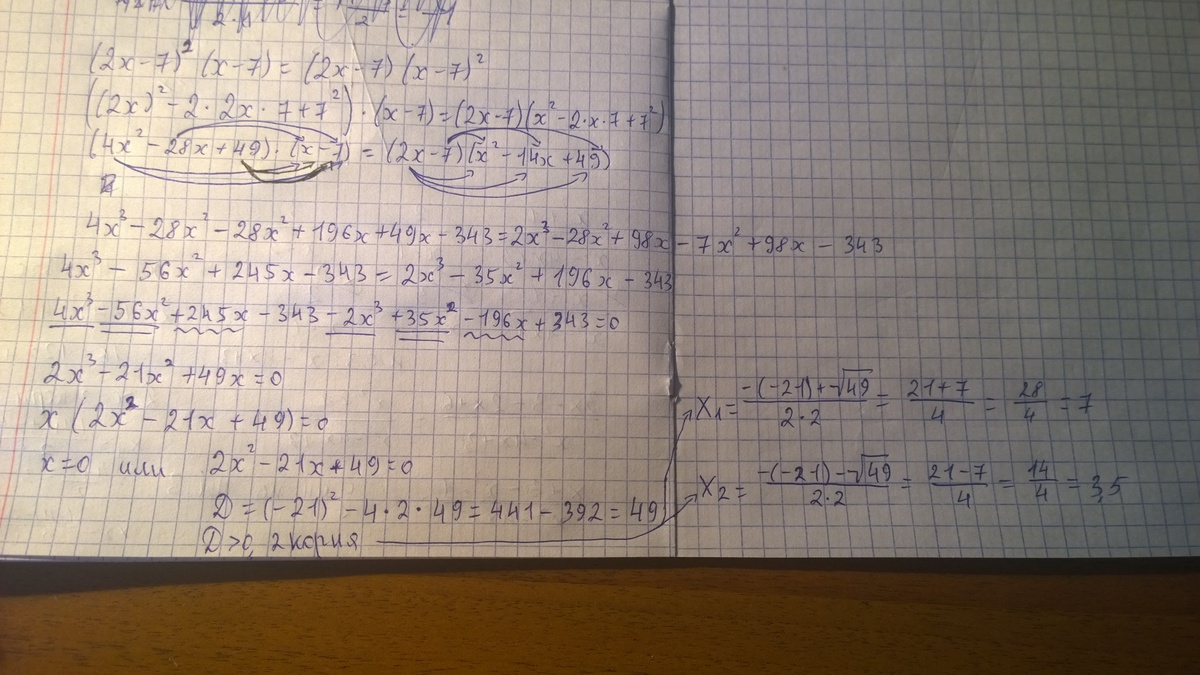 (2x-7)² (x-7) = (2x-7) (x-7)²
((2x)² - 2·2x·7+7²)·(x-7)=(2x-7)(x²-2·x·7+7²)
(4x²-28x+49)·(x-7) = (2x-7)(x²-14x+49)
4x³-28x²-28x²+196x+49x-343=2x³-28x²+98x-7x²+98x-343
4x³-56x²+245x-343=2x³-35x²+196x-343
4x³-56x²+245x-343-2x³+35x²-196x+343=0
2x³-21x²+49x=0
x(2x²-21x+49)=0
x=0 или 2x²-21x+49=0
D=(-21)²-4·2·49=441-392=49
D>0, 2 корня
X₁= -(-21)+√49 / 2·2 = 21+7 / 4 = 28 / 4 = 7
X₂= -(-21)-√49 / 2·2 = 21-7 / 4 = 14 / 4 = 3,5